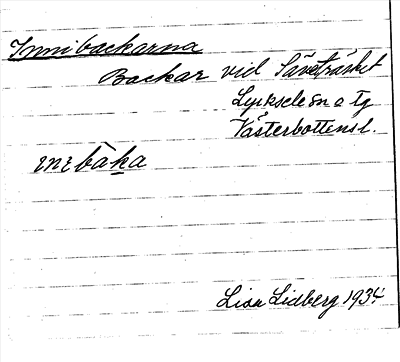 Innibackarna
Backar vid Säveträsket
Lycksele sn o tg
Västerbottens l.
inibàka
Lisa Lidberg 1934